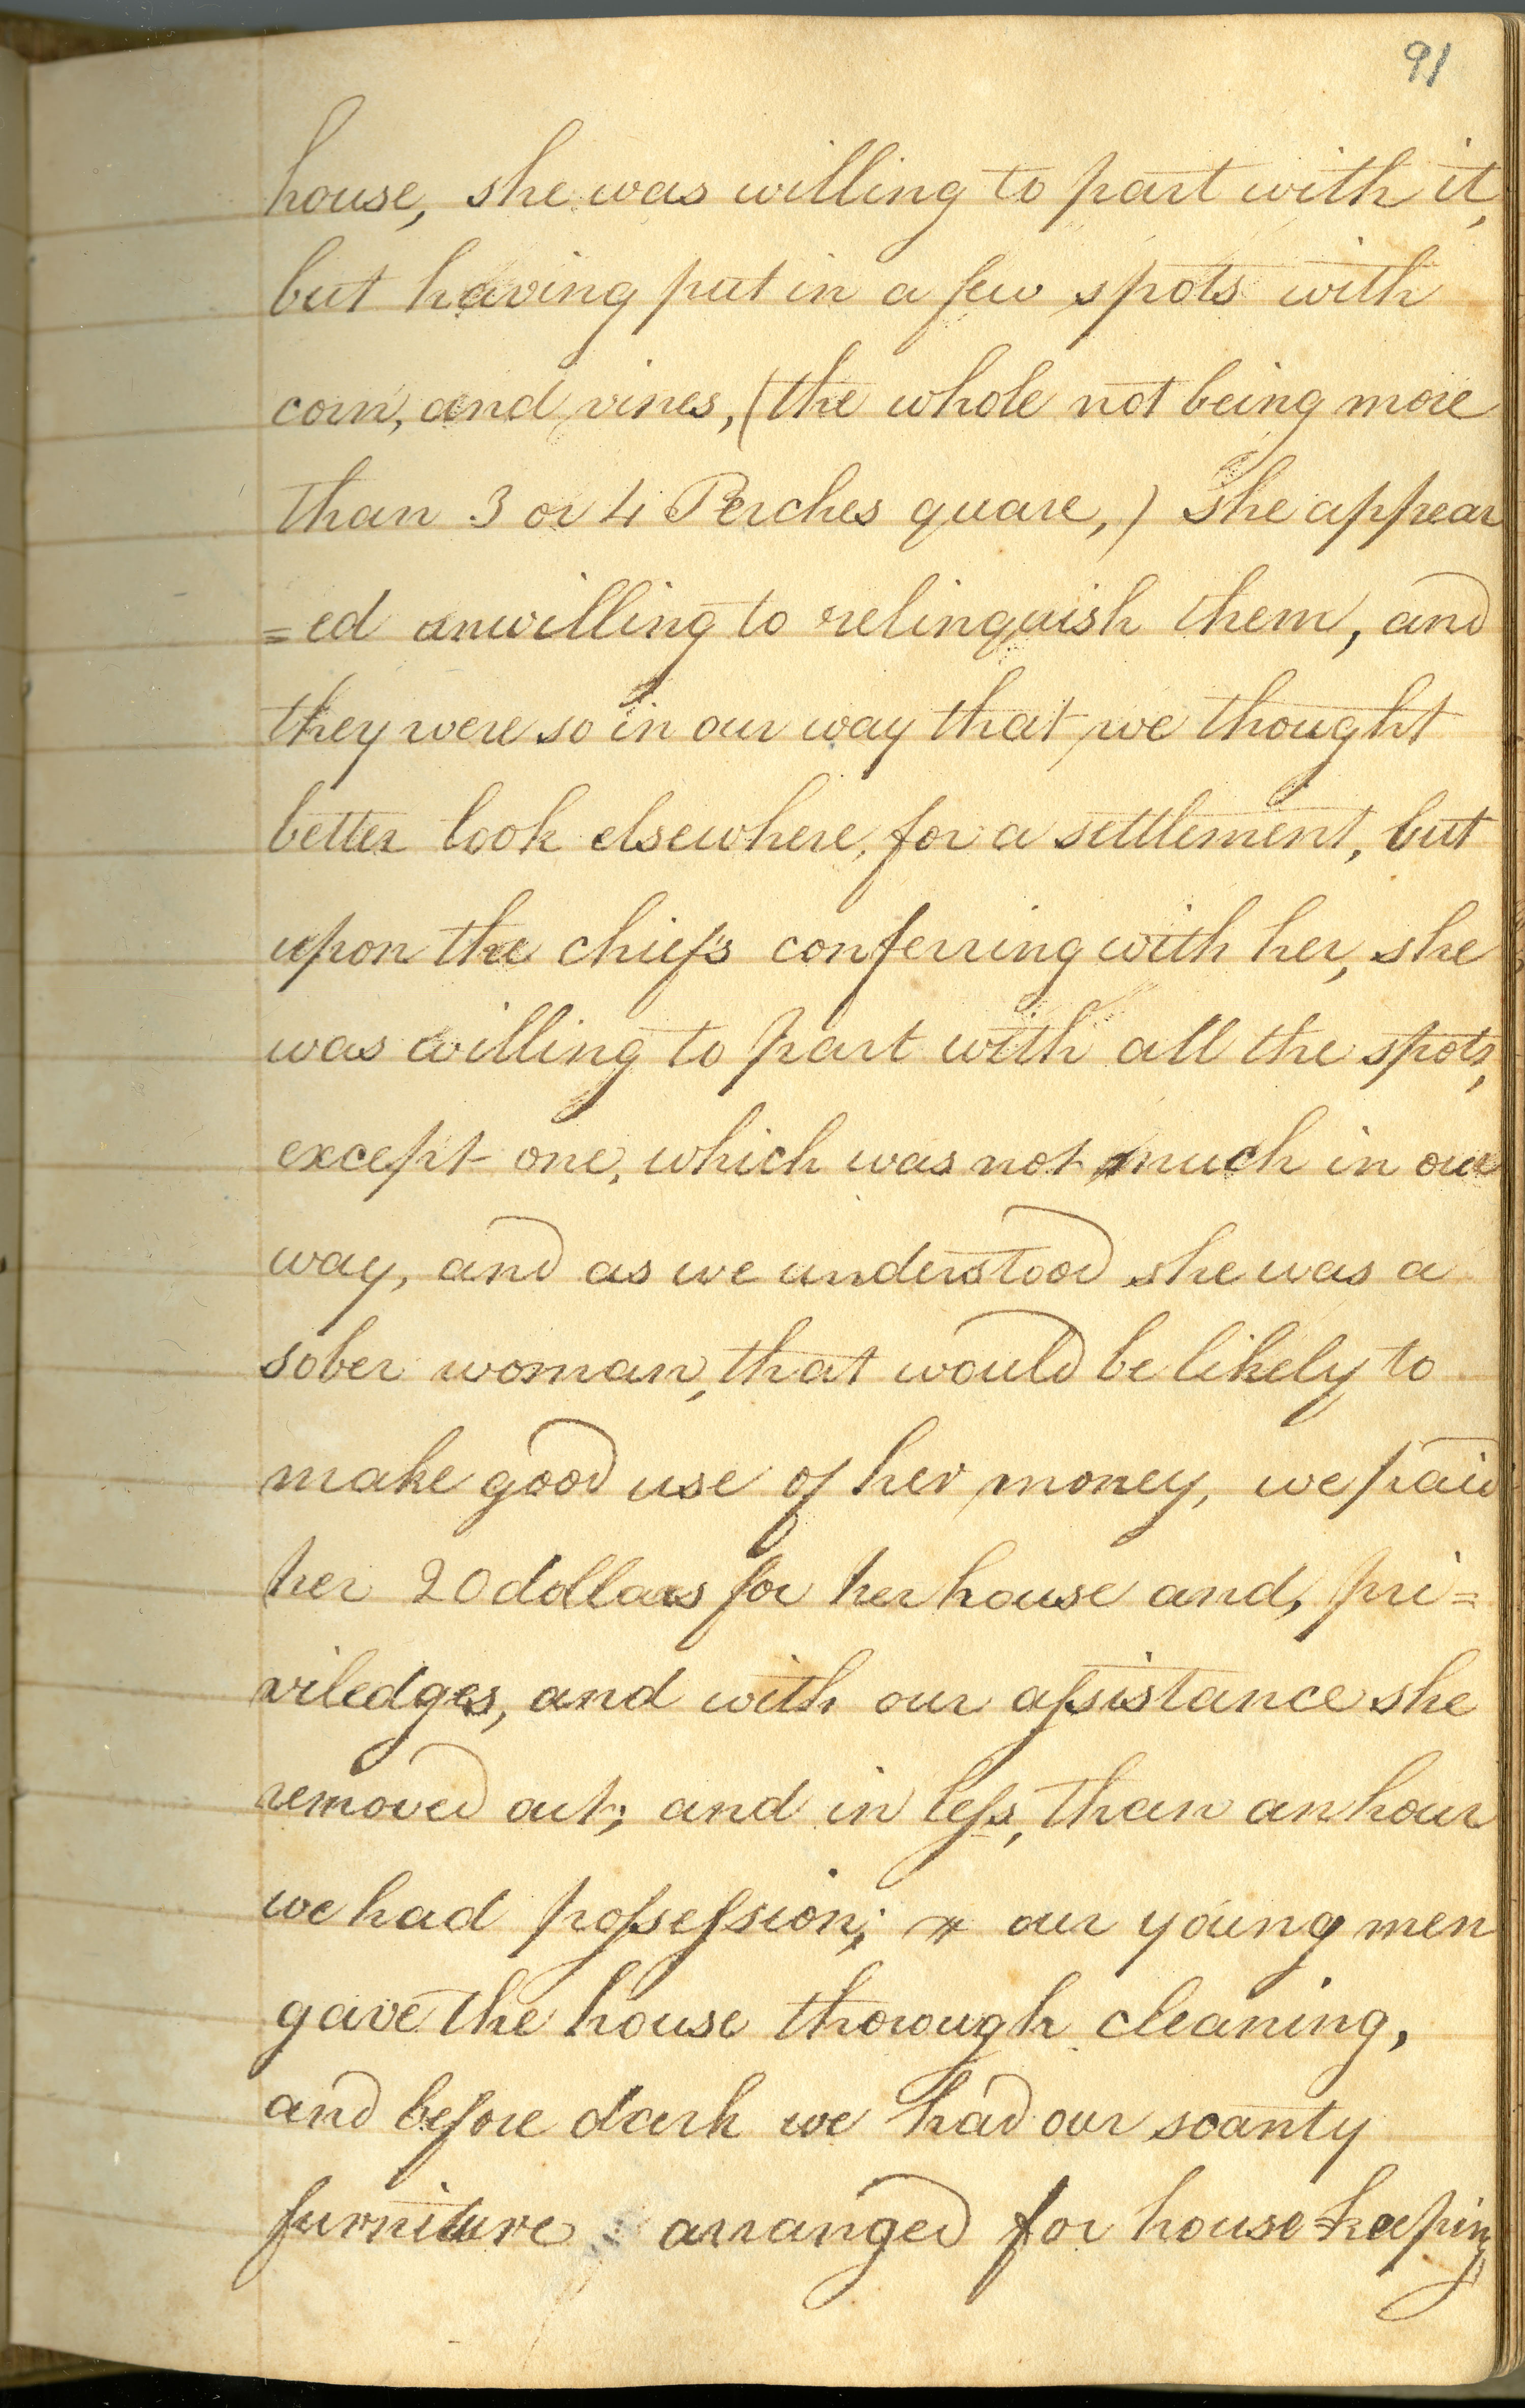 91
house, she was willing to part with it,
but having put in a few spots with
corn, and vines, (the whole not being more
than 3 or 4 Perches quare,) she appear
=ed unwilling to relinquish them, and
they were so in our way that we thought
better look elsewhere, for a settlement, but
upon the chiefs conferring with her, she
was willing to part with all the spots,
except one, which was not much in our
way, and as we understood she was a
sober woman, that would be likely to
make good use of her money, we paid
her 20 dollars for her house and, pri=
viledges, and with our assistance she
removed out; and in less, than an hour
we had possession; our young men
gave the house thorough cleaning,
and before dark we had our scanty
furniture arranged for house-keeping